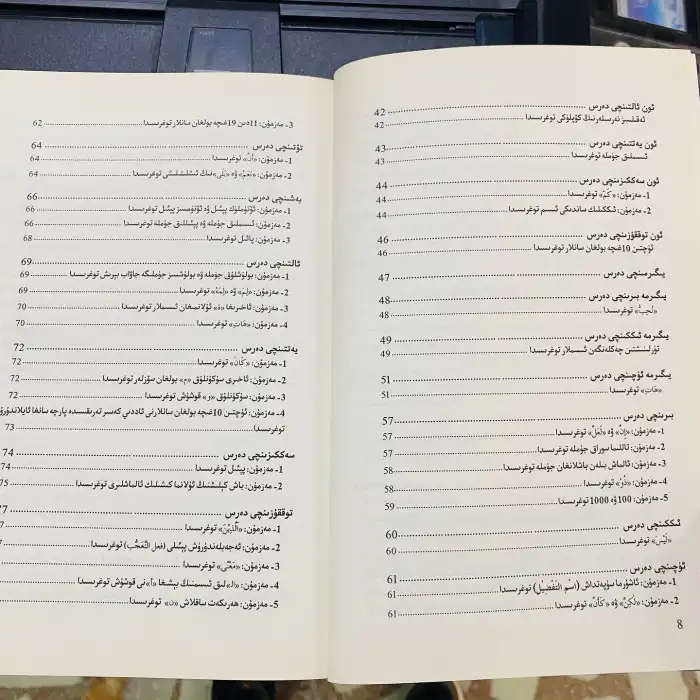 ئون ئالتىنچى دەرس ................ 42
ئەقىلسىز نەرسىلەرنىڭ كۆپلۈكى توغرىسىدا ................ 42
ئون يەتتىنچى دەرس ................ 43
ئىسمىلىق جۈملە توغرىسىدا ................ 43
ئون سەككىزىنچى دەرس ................ 44
1- مەزمۇن: «كَمْ» توغرىسىدا ................ 44
2- مەزمۇن: ئىككىلىك ساندىكى ئىسىم توغرىسىدا ................ 44
ئون توققۇزىنچى دەرس ................ 46
ئۈچتىن 10غىچە بولغان سانلار توغرىسىدا ................ 46
يىگىرمىنچى دەرس ................ 47
يىگىرمە بىرىنچى دەرس ................ 48
«نُحِبُّ» توغرىسىدا ................ 48
يىگىرمە ئىككىنچى دەرس ................ 49
تۈرلىنىشتىن چەكلەنگەن ئىسىملار توغرىسىدا ................ 49
يىگىرمە ئۈچىنچى دەرس ................ 51
«هَاتِ» توغرىسىدا ................ 51
بىرىنچى دەرس ................ 57
1- مەزمۇن: «إِنَّ» ۋە «لَعَلَّ» توغرىسىدا ................ 57
2- مەزمۇن: تاللىما سوراق جۈملە توغرىسىدا ................ 57
3- مەزمۇن: ئالماش بىلەن باشلانغان جۈملە توغرىسىدا ................ 58
4- مەزمۇن: «ذُوْ» توغرىسىدا ................ 58
5- مەزمۇن: 100 ۋە 1000 توغرىسىدا ................ 59
ئىككىنچى دەرس ................ 60
«لَيْسَ» توغرىسىدا ................ 60
ئۈچىنچى دەرس ................ 61
1- مەزمۇن: ئاشۇرما سۈپەتداش (اسْم التَّفْضِيْل) توغرىسىدا ................ 61
2- مەزمۇن: «لَٰكِنَّ» ۋە «كَأَنَّ» توغرىسىدا ................ 61
8
3- مەزمۇن: 11دىن 19غىچە بولغان سانلار توغرىسىدا ................ 62
تۆتىنچى دەرس ................ 64
1- مەزمۇن: «أَنَّ» توغرىسىدا ................ 64
2- مەزمۇن: «نَعَمْ» ۋە «بَلَى»نىڭ ئىشلىتىلىشى توغرىسىدا ................ 64
بەشىنچى دەرس ................ 66
1- مەزمۇن: ئۆتۈملۈك پېئىل ۋە ئۆتۈمسىز پېئىل توغرىسىدا ................ 66
2- مەزمۇن: ئىسمىلىق جۈملە ۋە پېئىللىق جۈملە توغرىسىدا ................ 66
3- مەزمۇن: پائىل توغرىسىدا ................ 68
ئالتىنچى دەرس ................ 69
1- مەزمۇن: بولۇشلۇق جۈملە ۋە بولۇشسىز جۈملىگە جاۋاب بېرىش توغرىسىدا ................ 69
2- مەزمۇن: «لِمَ» ۋە «لِمَهْ» توغرىسىدا ................ 69
3- مەزمۇن: ئاخىرىغا «ة» ئۇلانمىغان ئىسىملار توغرىسىدا ................ 70
4- مەزمۇن: «هَاتِ» توغرىسىدا ................ 70
يەتتىنچى دەرس ................ 72
1- مەزمۇن: «كَانَ» توغرىسىدا ................ 72
2- مەزمۇن: ئاخىرى سۇكۇنلۇق «م» بولغان سۆزلەر توغرىسىدا ................ 72
3- مەزمۇن: سۇكۇنلۇق «و» قوشۇش توغرىسىدا ................ 72
4- مەزمۇن: ئۈچتىن 10غىچە بولغان سانلارنى ئاددىي كەسىر تەرىقىسىدە پارچە سانغا ئايلاندۇرۇ
توغرىسىدا ................ 73
سەككىزىنچى دەرس ................ 74
1- مەزمۇن: پېئىل توغرىسىدا ................ 74
2- مەزمۇن: باش كېلىشنىڭ ئۇلانما كىشىلىك ئالماشلىرى توغرىسىدا ................ 75
توققۇزىنچى دەرس ................ 77
1- مەزمۇن: «الَّذِيْنَ» توغرىسىدا ................ 7
2- مەزمۇن: ئەجەبلەندۈرۈش پېئىلى (فعل التَّعَجُّب) توغرىسىدا ................ 7
3- مەزمۇن: «مَعْنَى» توغرىسىدا ................
4- مەزمۇن: «ال»لىق ئىسىمنىڭ بېشىغا «أ»نى قوشۇش توغرىسىدا ................
5- مەزمۇن: ھەرىكەت ساقلاش «ن» توغرىسىدا ................